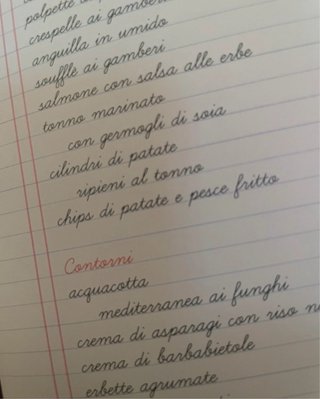 polpette
crespelle ai gamberi
anguilla in umido
soufflé ai gamberi
salmone con salsa alle erbe
tonno marinato
con germogli di soia
cilindri di patate
ripieni al tonno
chips di patate e pesce fritto
Contorni
acquacotta
mediterranea ai funghi
crema di asparagi con riso
crema di barbabietole
erbette agrumate